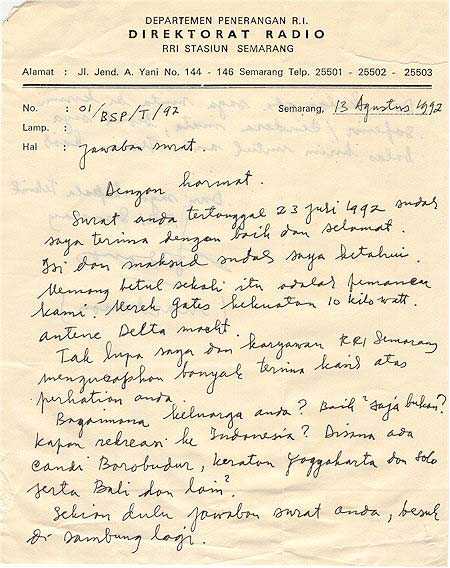 DEPARTEMEN PENERANGAN R.I.
DIREKTORAT RADIO
RRI STASIUN SEMARANG
Alamat : Jl. Jend. A. Yani No. 144 - 146 Semarang Telp. 25501 - 25502 - 25503
No. : 01/BSP/T/92 Semarang, 13 Agustus 1992
Lamp. :
Hal : Jawaban surat.
Dengan hormat.
Surat anda tertanggal 23 juli 1992 sudah
saya terima dengan baik dan selamat.
Isi dan maksud sudah saya ketahui.
Memang betul sekali itu adalah pemancar
kami Merek Gates kekuatan 10 kilo watt.
antene Delta macht.
Tak lupa saya dan karyawan RRI Semarang
mengucapkan banyak terima kasih atas
perhatian anda.
Bagaimana keluarga anda? Baik² saja bukan?
Kapan rekreasi ke Indonesia? Disana ada
candi Borobudur, keraton Yogyakarta dan Solo
serta Bali dan lain².
Sekian dulu jawaban surat anda, besuk
di sambung lagi.